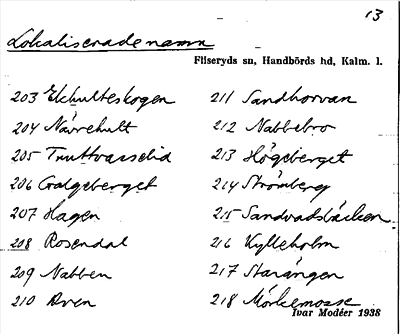 13
Lokaliserade namn
Fliseryds sn, Handbörds hd, Kalm. l.
203 Ekhulteskogen
204 Närrehult
205
206 Galgeberget
207 Hagen
208 Rosendal
209 Nabben
210
211 Sandhorvan
212 Nabbebro
213 Högeberget
214 Strömberg
215 Sandvadsbäcken
216 Kylleholm
217 Starängen
218 Mörkemosse
Ivar Modéer 1938